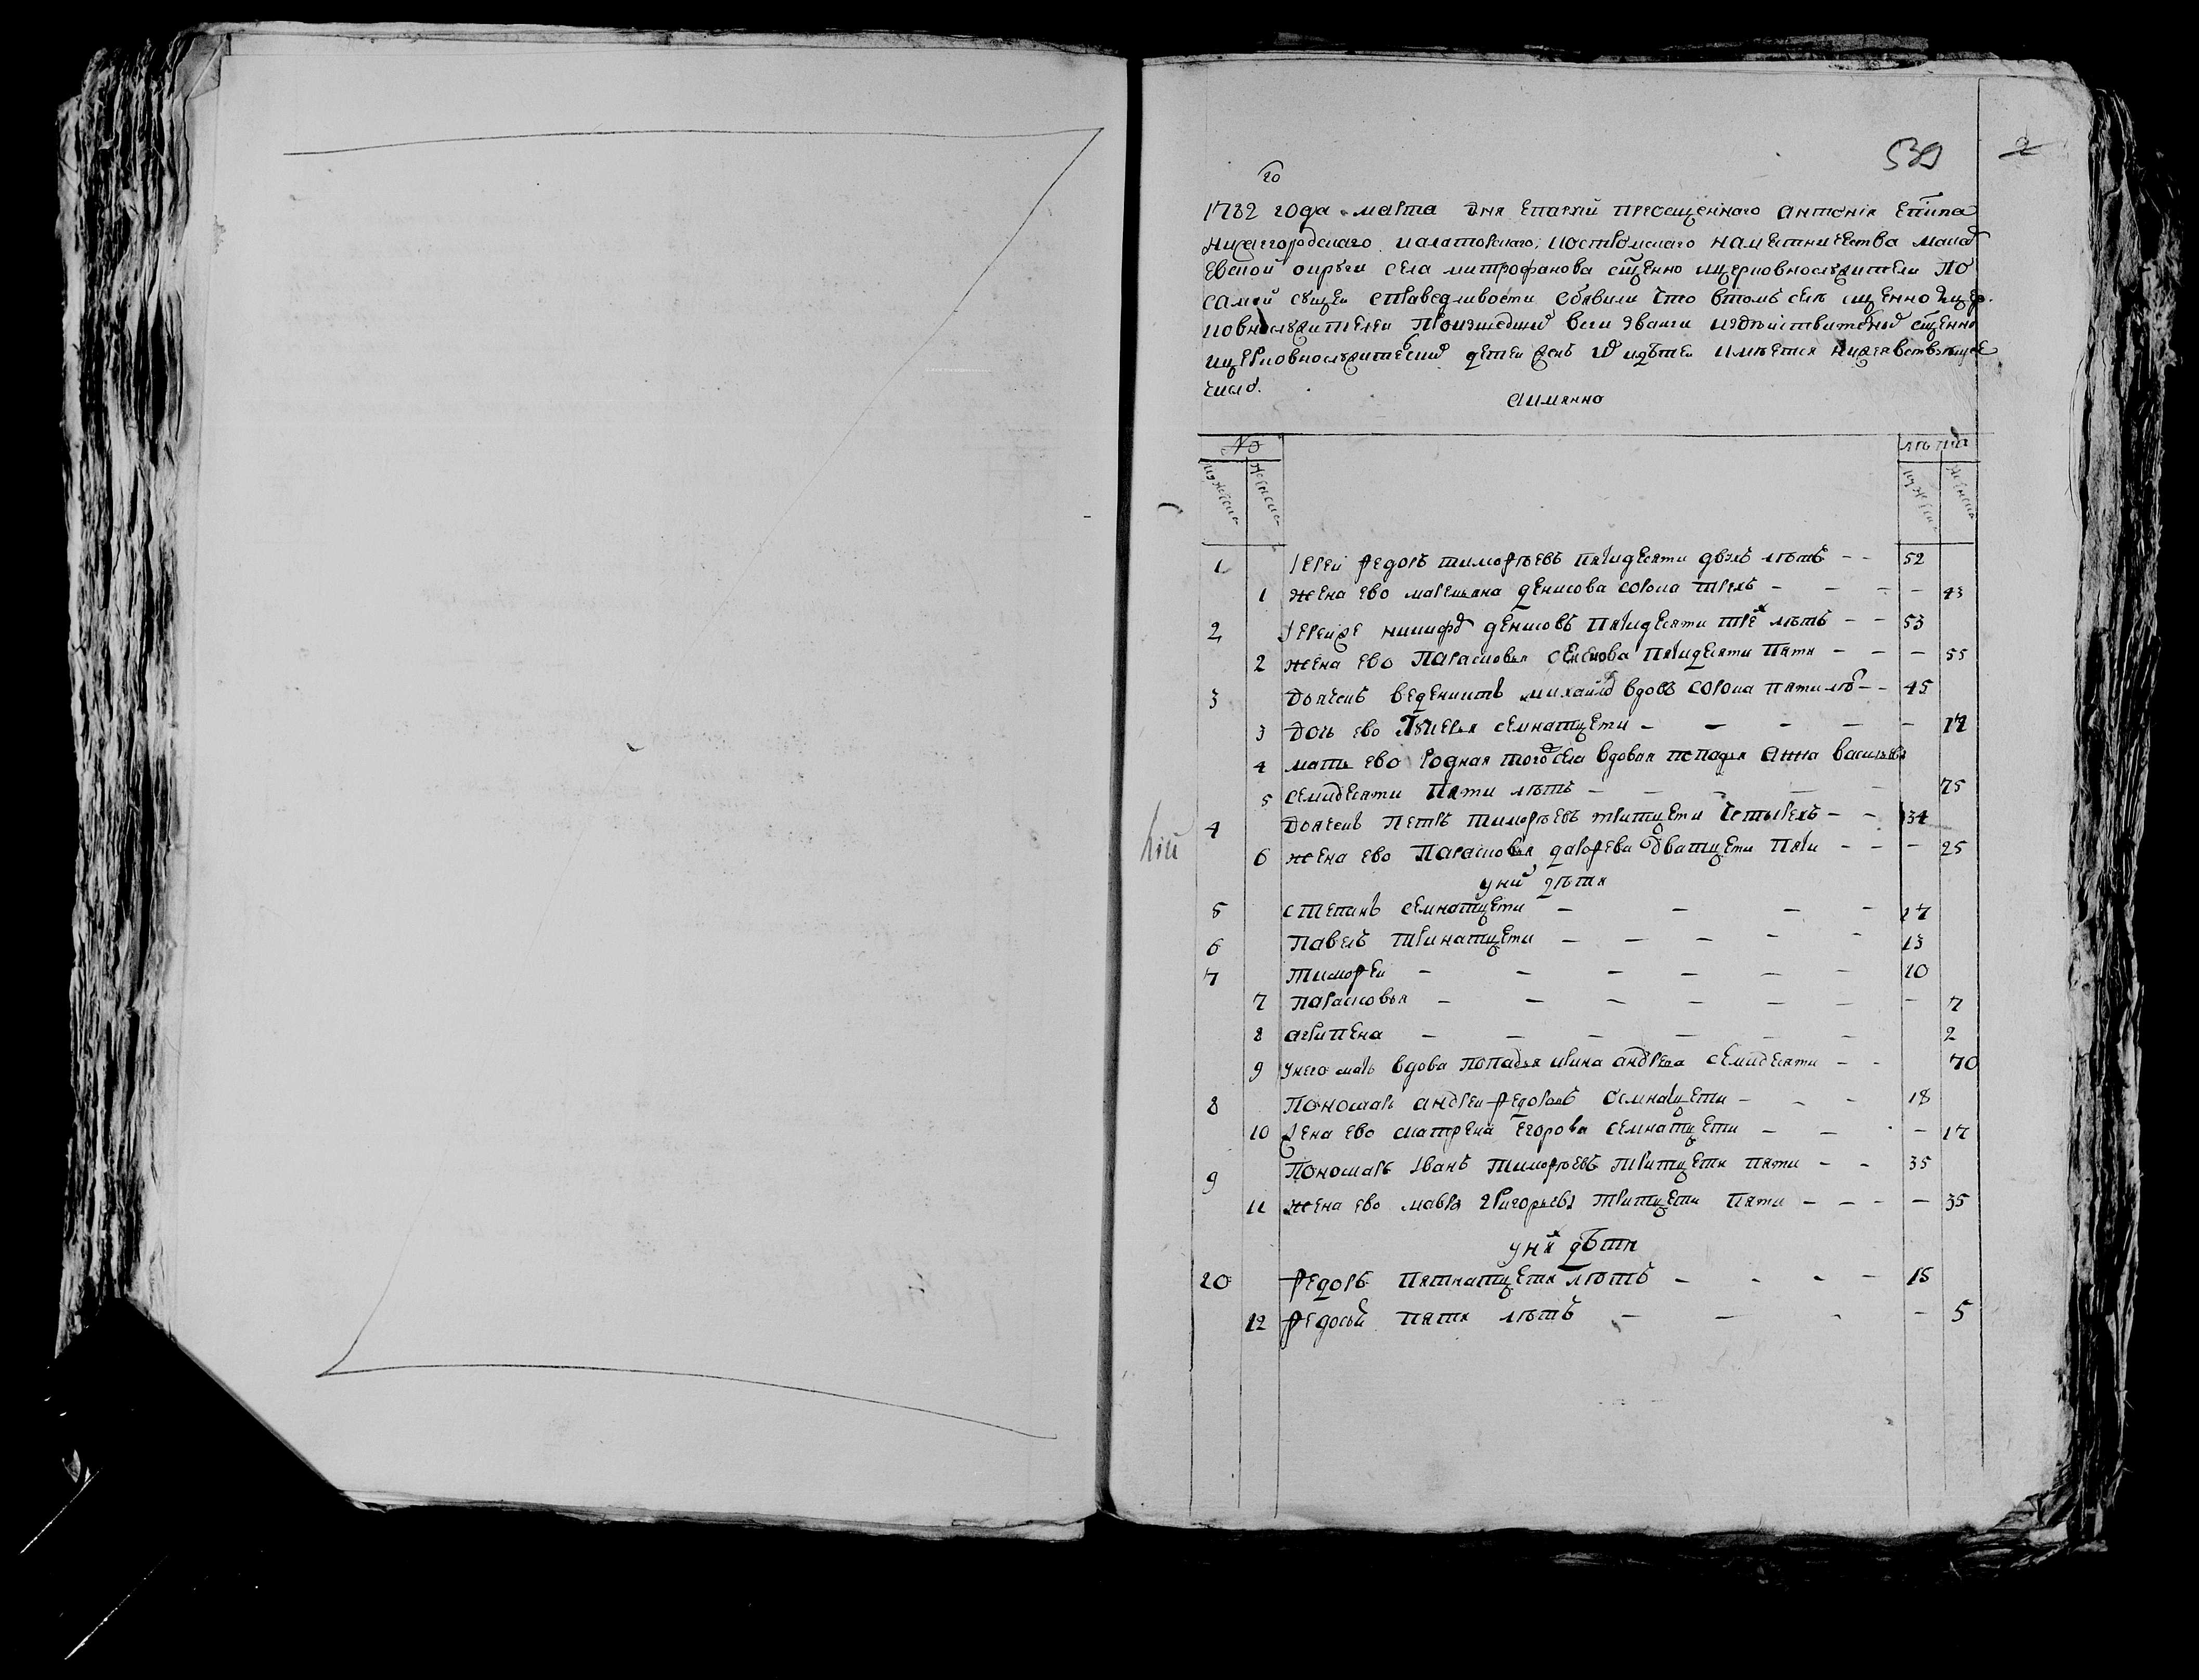 539 2
го
1782 года марта дня епархии преосщеннаго антонія епіпа
нижегородскаго иалаторскаго, костромскаго наместничества мака
евской округи села митрофанова сщенно ицерковнослужители по
самой сущей справедливости обявили что втомъ селѣ сщенно ицер
ковнослужителей произшедши
ицерковнослужителски детей женъ идѣтей имѣется нижеявствующее
число.
аимянно
№ лѣта
мужеска женска мужеска женска
1 Іереи Федоръ тимофѣевъ пятидесяти двухъ лѣтъ - - 52
1 жена ево маремьяна денисова сорока трехъ - - - - 43
2 Іереиже никифо денисовъ пятидесяти тре х лѣтъ - - 53
2 жена ево Парасковья семенова пятидесяти пяти - - - 55
3 Дьячекъ веденихтъ михайло вдовъ сорока пяти лѣ - - 45
3 Дочь ево Гликерья семнатцети - - - - - 17
4 мать ево родная тогоже села вдовая попадья Анна васильева
5 семидесяти пяти лѣтъ - - - - 75
4 Дьячекъ Петръ тимофѣевъ тритцети четырехъ - - 34
6 жена ево Парасковья дарофева дватцети пяти - - - 25
уних дѣти
5 степанъ семнатцети - - - - 17
6 павелъ тринатцети - - - - - 13
7 тимофеи - - - - - - 10
7 парасковья - - - - - - - 7
8 агрипена - - - - - - 2
9 унего мать вдова попадья ирина андреева семидесяти - - 70
8 Пономарь андреи федоровъ осмнатцети - - - 18
10 жена ево матрена егорова семнатцети - - - - 17
9 Пономарь Іванъ тимофѣевъ тритцети пяти - - 35
11 жена ево мавра григорьева тритцети пяти - - - - 35
уних дѣти
10 Федоръ пятнатцети лѣтъ - - - - 15
12 федосья пяти лѣтъ - - - - 5